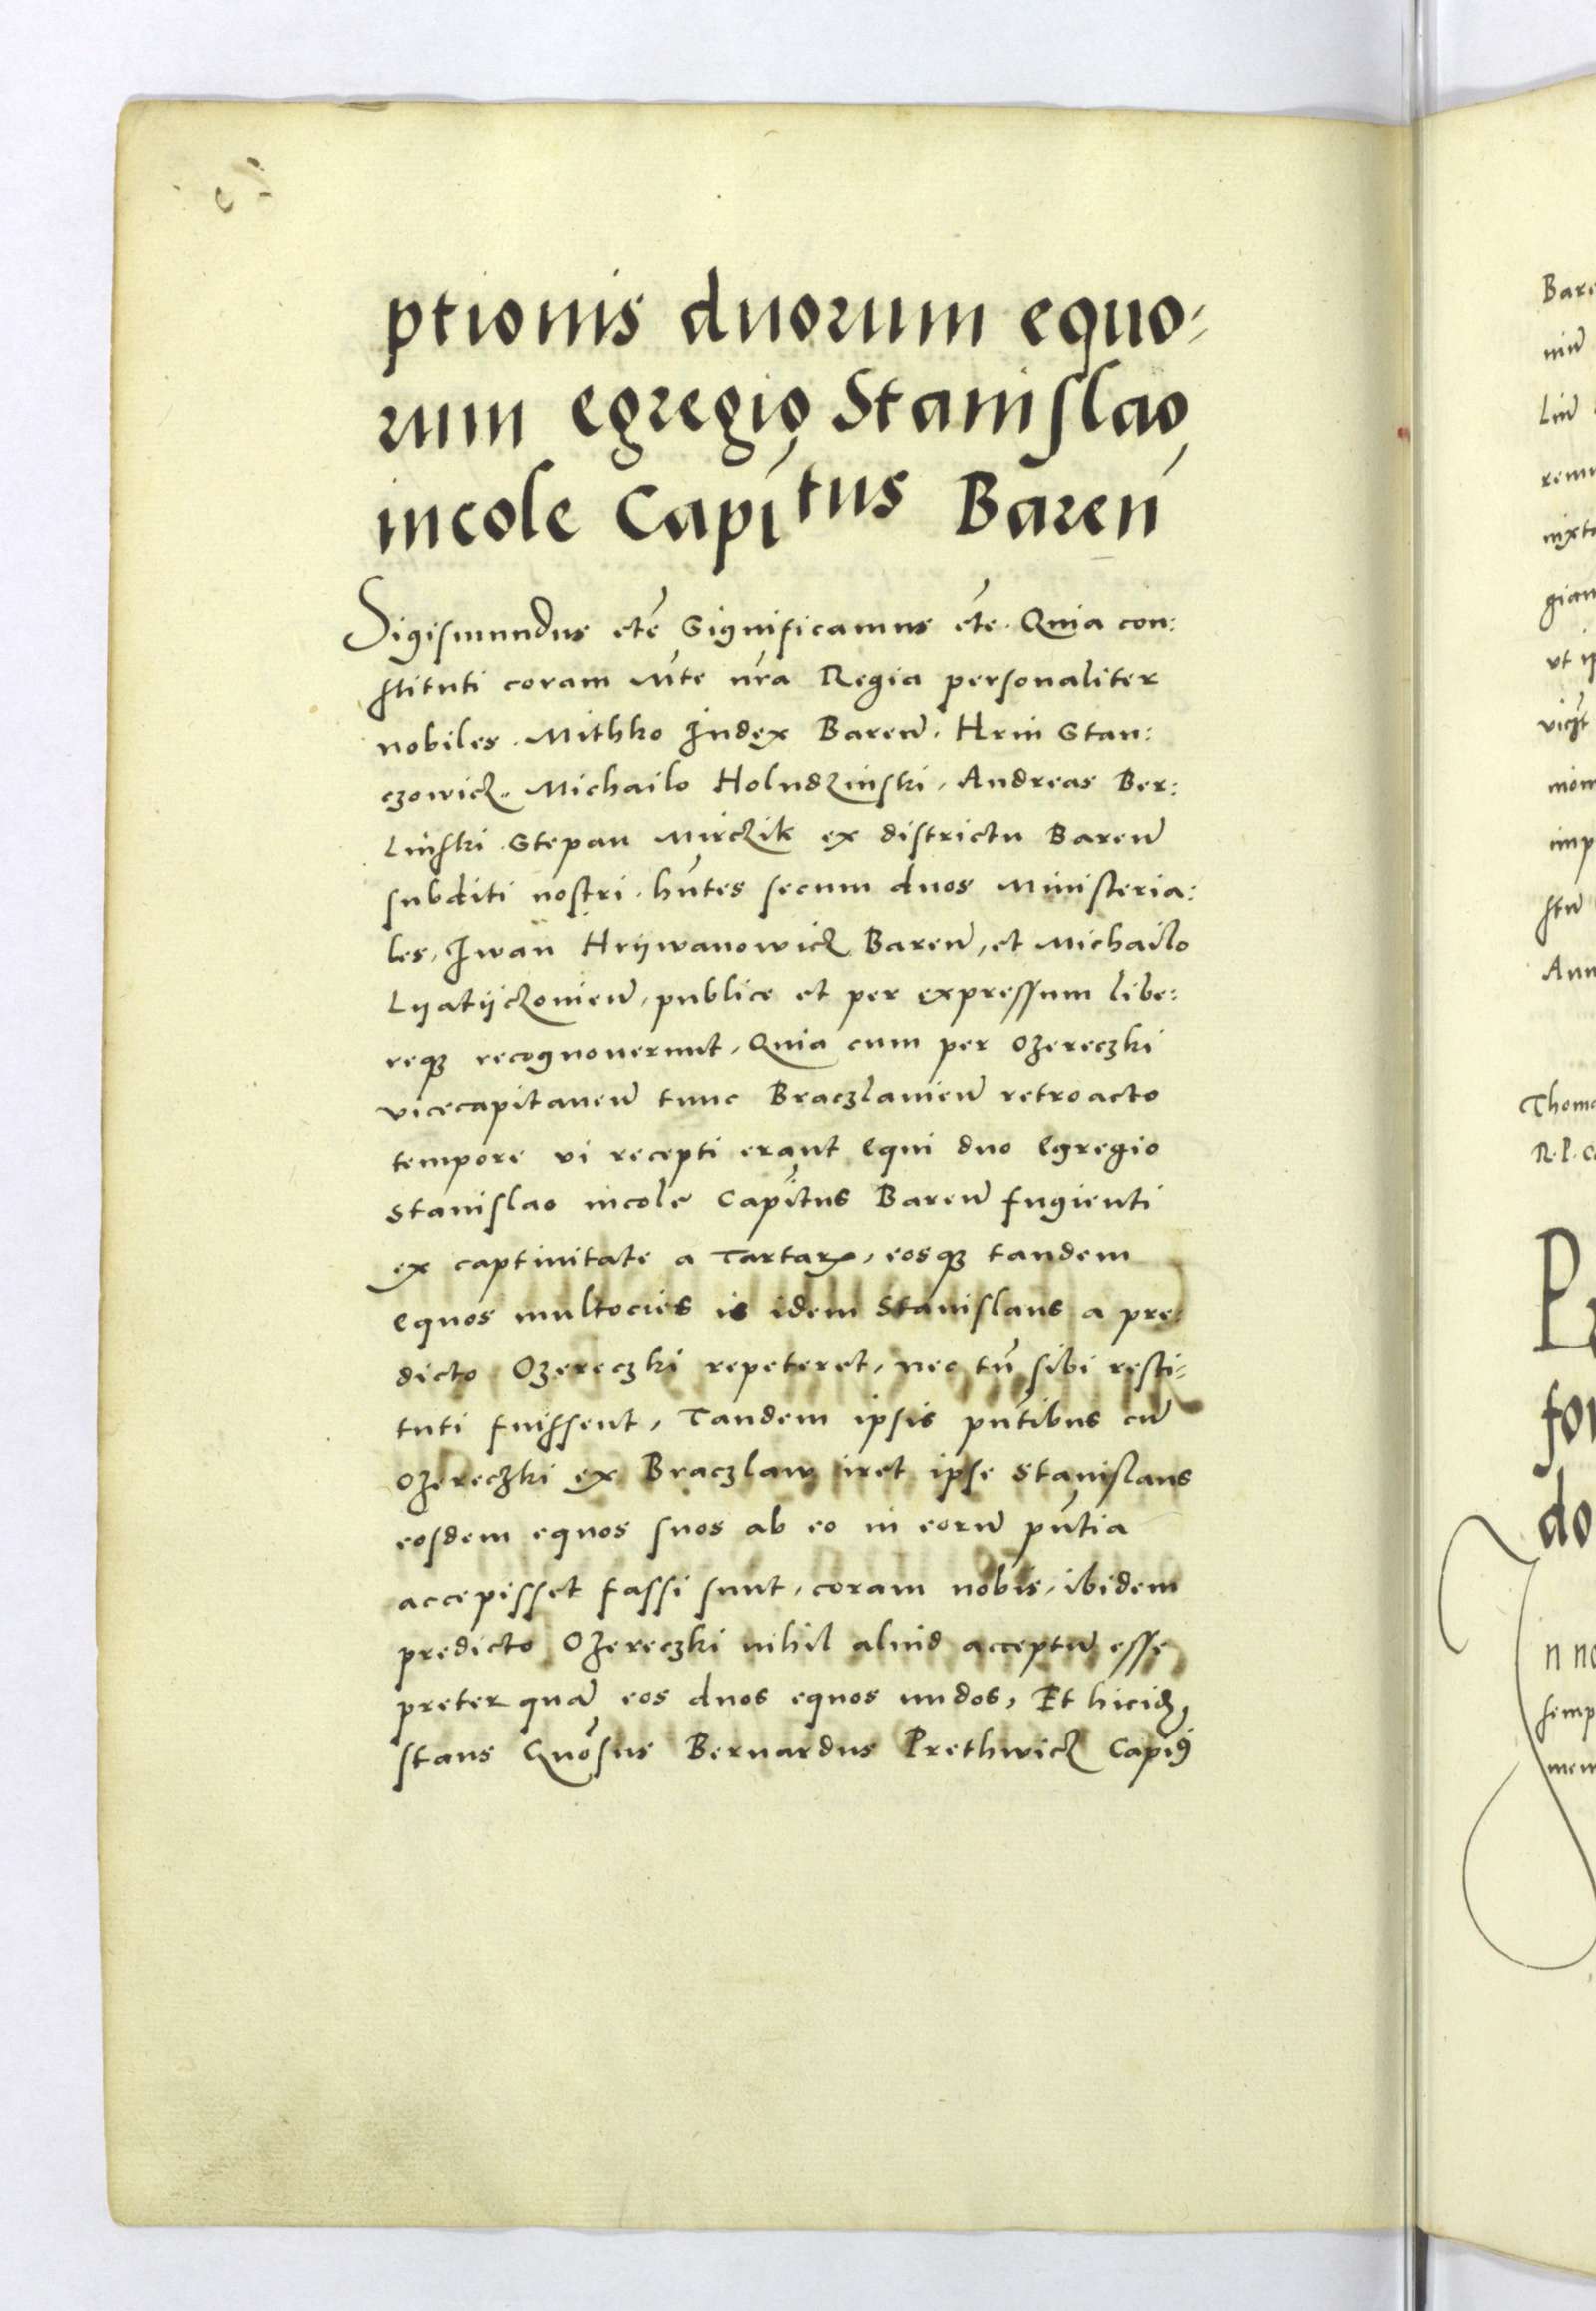 ptionis duorum equo-
rum egregio Stanislao
incole Capitus Baren
Sigismundus etc Significamus etc. Quia con:
stituti coram Mte nra Regia personaliter
nobiles. Mithko Judex Baren. Hrin Stan:
czowicz. Michailo Holudzinski, Andreas Ber:
linski. Stepan Mirczik ex districtu Baren
subditi nostri. hntes secum duos Ministeria:
les, Iwan Hrijwanowicz Baren, et Michailo
Lijatijczovien, publice et per expressum libe:
reque recognoverunt, Quia cum per Ozereczki
vicecapitaneum tunc Braczlavien retroacto
tempore vi recepti erant Equi duo Egregio
Stanislao incole Capitus Baren fugienti
ex captivitate a Tartaris, eosque tandem
equos multocies is idem Stanislaus a pre:
dicto Ozereczki repeteret, nec tn sibi resti-
tuti fuissent, Tandem ipsis pntibus cum
Ozereczki ex Braczlaw iret ipse Stanislaus
eosdem equos suos ab eo in eorum pntia
accepisset fassi sunt, coram nobis, ibidem
predicto Ozereczki nihil aliud acceptum esse
preter quam eos duos equos nudos, Et hicidem
stans Gnosus Bernardus Prethwicz Capis
Bare
rem
gian
Thoma
R. P. C
for
do
n no
semp